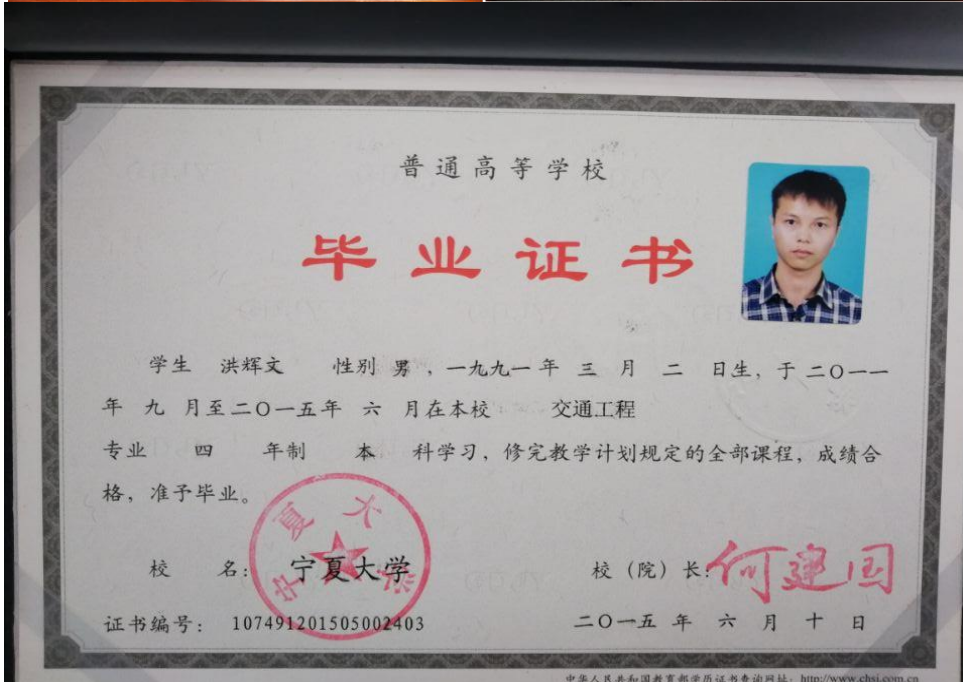 普通高等学校
毕业证书
学生 洪辉文 性别 男，一九九一年 三 月 二 日生，于二〇一一
年 九 月至二〇一五年 六 月在本校 交通工程
专业 四 年制 本 科学习，修完教学计划规定的全部课程，成绩合
格，准予毕业。
校 名：宁夏大学
宁夏大学
校（院）长：何建国
证书编号：107491201505002403
二〇一五 年 六 月 十 日
中华人民共和国教育部学历证书查询网址：http://www.chsi.com.cn